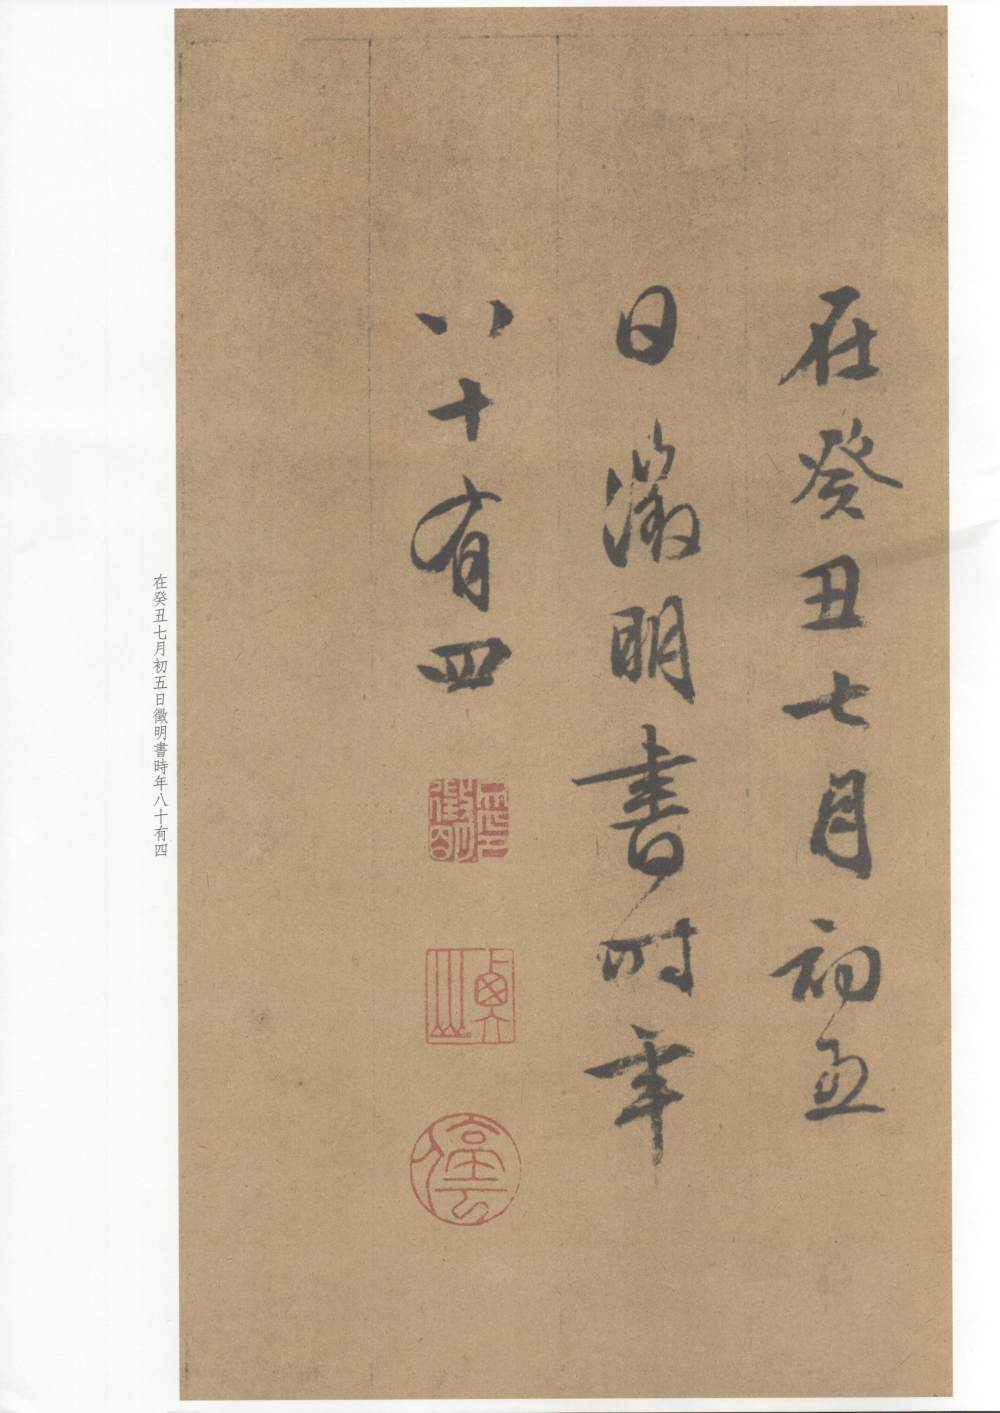 在癸丑七月初五
日徵明書時年
八十有四
徵明
貞山
停雲
在癸丑七月初五日徵明書時年八十有四